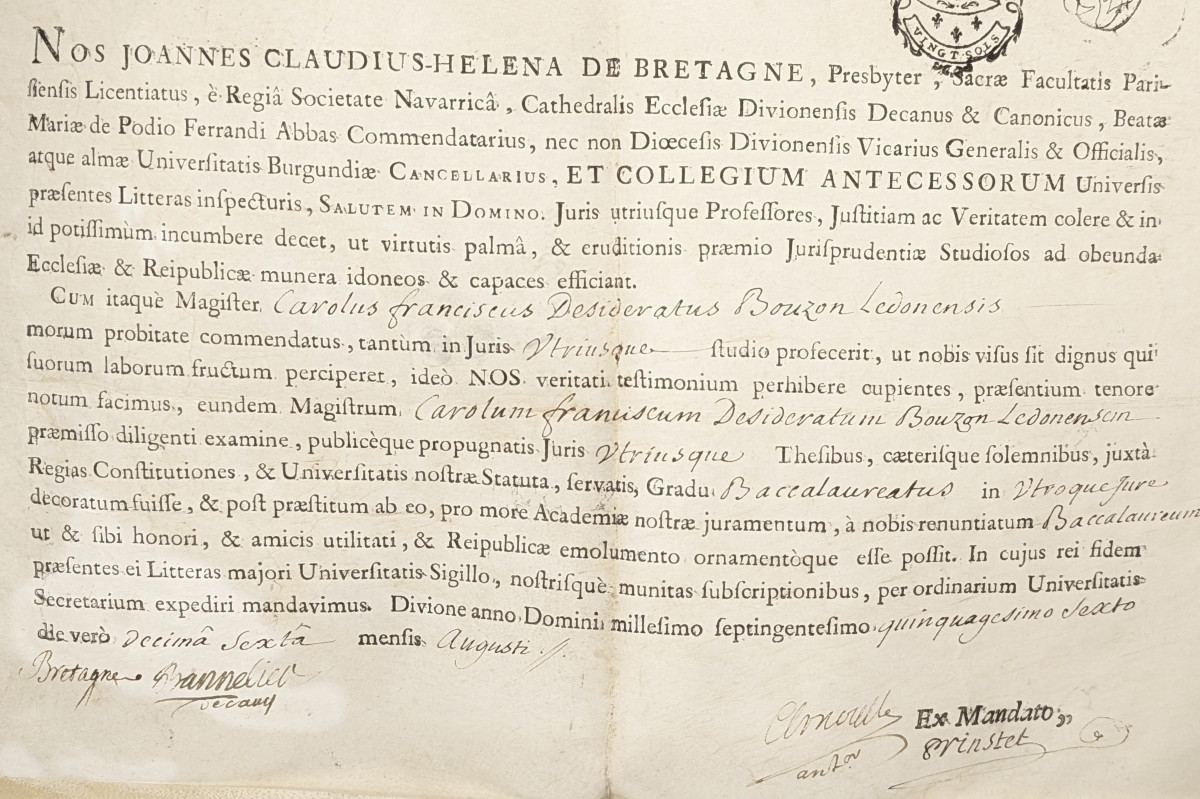 VINGT·SOLS
NOS JOANNES CLAUDIUS-HELENA DE BRETAGNE, Presbyter, Sacræ Facultatis Pari-
ſienſis Licentiatus, è Regiâ Societate Navarricâ, Cathedralis Eccleſiæ Divionenſis Decanus & Canonicus, Beatæ
Mariæ de Podio Ferrandi Abbas Commendatarius, nec non Diœceſis Divionenſis Vicarius Generalis & Officialis,
atque almæ Univerſitatis Burgundiæ CANCELLARIUS, ET COLLEGIUM ANTECESSORUM Univerſis
præſentes Litteras inſpecturis, SALUTEM IN DOMINO. Juris utriuſque Profeſſores, Juſtitiam ac Veritatem colere & in
id potiſſimùm incumbere decet, ut virtutis palmâ, & eruditionis præmio Juriſprudentiæ Studioſos ad obeunda
Eccleſiæ & Reipublicæ munera idoneos & capaces efficiant.
CUM itaquè Magiſter Carolus franciscus Desideratus Bouzon Ledonensis
morum probitate commendatus, tantùm in Juris Vtriusque ſtudio profecerit, ut nobis viſus ſit dignus qui
ſuorum laborum fructum perciperet, ideò NOS veritati teſtimonium perhibere cupientes, præſentium tenore
notum facimus, eundem Magiſtrum Carolum franciscum Desideratum Bouzon Ledonensem
præmiſſo diligenti examine, publicèque propugnatis Juris Vtriusque Theſibus, cæteriſque ſolemnibus, juxtà
Regias Conſtitutiones, & Univerſitatis noſtræ Statuta, ſervatis, Gradu Baccalaureatus in Vtroque Jure
decoratum fuiſſe, & poſt præſtitum ab eo, pro more Academiæ noſtræ juramentum, à nobis renuntiatum Baccalaureum
ut & ſibi honori, & amicis utilitati, & Reipublicæ emolumento ornamentòque eſſe poſſit. In cujus rei fidem
præſentes ei Litteras majori Univerſitatis Sigillo, noſtriſquè munitas ſubſcriptionibus, per ordinarium Univerſitatis
Secretarium expediri mandavimus. Divione anno Domini milleſimo ſeptingenteſimo quinquagesimo sexto
die verò Decimâ Sextâ menſis Augusti //.
Bretagne Bannelier
Decanus
Ex Mandato,
antor